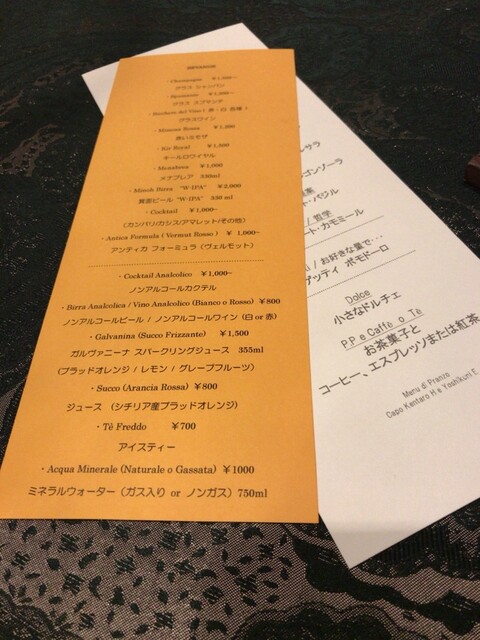 BEVANDE
・Champagne ￥1,800~
グラス シャンパン
・Spumante ￥1,200~
グラス スプマンテ
・Bicchere del Vino ( 赤・白 各種 )
グラスワイン
・Mimosa Rossa ￥1,200
赤いミモザ
・Kir Royal ￥1,800
キールロワイヤル
・Menabrea ￥1,000
メナブレア 330ml
・Minoh Birra "W-IPA" ￥2,000
箕面ビール "W-IPA" 330 ml
・Cocktail ￥1,000~
(カンパリ/カシス/アマレット/その他)
・Antica Formula ( Vermut Rosso ) ￥ 1,000~
アンティカ フォーミュラ（ヴェルモット）
・Cocktail Analcolico ￥1,000~
ノンアルコールカクテル
・Birra Analcolica / Vino Analcolico (Bianco o Rosso) ￥800
ノンアルコールビール / ノンアルコールワイン (白 or 赤)
・Galvanina (Succo Frizzante) ￥1,500
ガルヴァニーナ スパークリングジュース 355ml
(ブラッドオレンジ / レモン / グレープフルーツ)
・Succo (Arancia Rossa) ￥800
ジュース (シチリア産ブラッドオレンジ)
・Tè Freddo ￥700
アイスティー
・Acqua Minerale (Naturale o Gassata) ￥1000
ミネラルウォーター（ガス入り or ノンガス）750ml
ルサラ
ゴンゾーラ
ト・バジル
/ 哲学
ート・カモミール
/ お好きな量で…
ゲッティ ポモドーロ
Dolce
小さなドルチェ
P.P e Caffè o Tè
お茶菓子と
コーヒー、エスプレッソまたは紅茶
Menu di Pranzo
Capo Kentaro H e Yoshikuni E